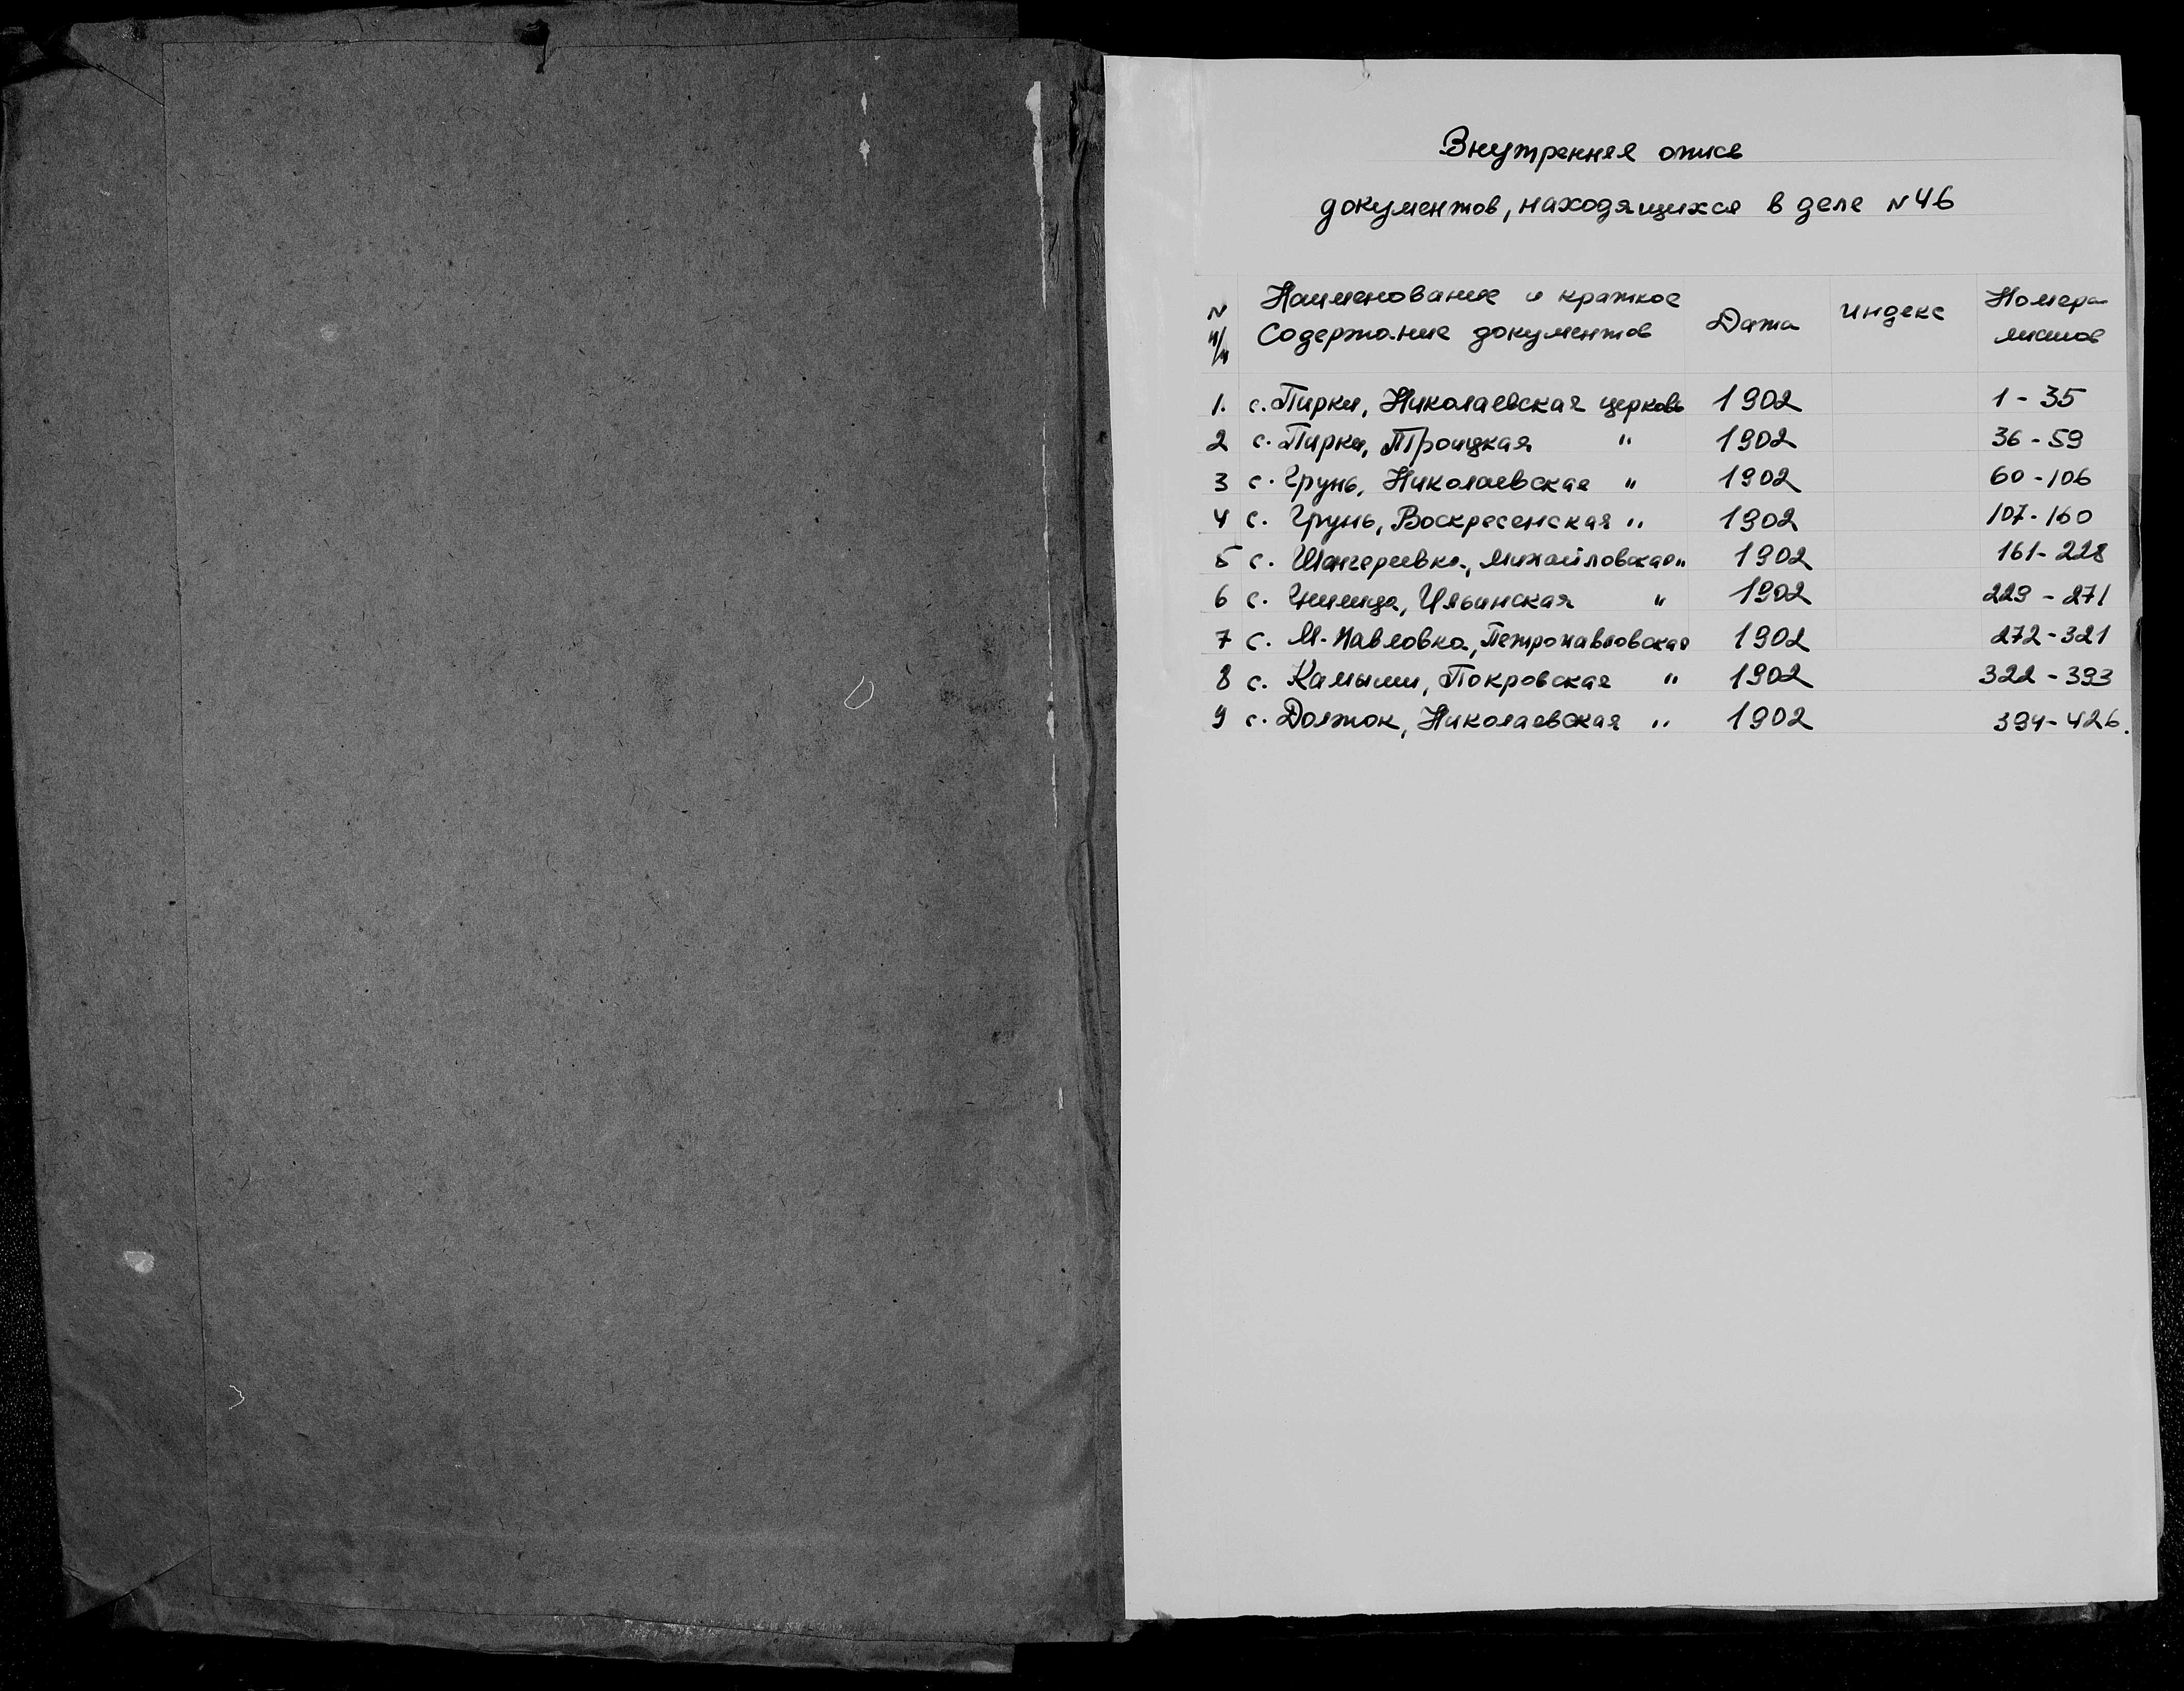 Внутренняя опись
документов, находящихся в деле N 46
N п/п Наименование и краткое содержание документов Дата индекс Номера листов
1. с. Пирки, Николаевская церковь 1902 1-35
2 с. Пирки, Троицкая " 1902 36-59
3 с. Грунь, Николаевская " 1902 60-106
4 с. Грунь, Воскресенская " 1902 107-160
5 с. Шенгереевка, Михайловская " 1902 161-228
6 с. Ильинская " 1902 229-271
7 с. М-Павловка, Петропавловская 1902 272-321
8 с. Камыши, Покровская " 1902 322-393
9 с. Должок, Николаевская " 1902 394-426.